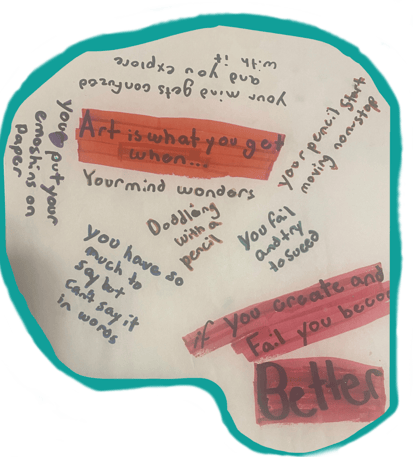 Art is what you get
when...
your mind gets confuzed
and you explore
with it
your pencil start
moving nonstop
you put your
emoshins on
paper
Your mind wonders
Doddling
with a
pencil
you fail
and try
to succed
you have so
much to
say but
can't say it
in words
if you create and
Fail you becom
Better